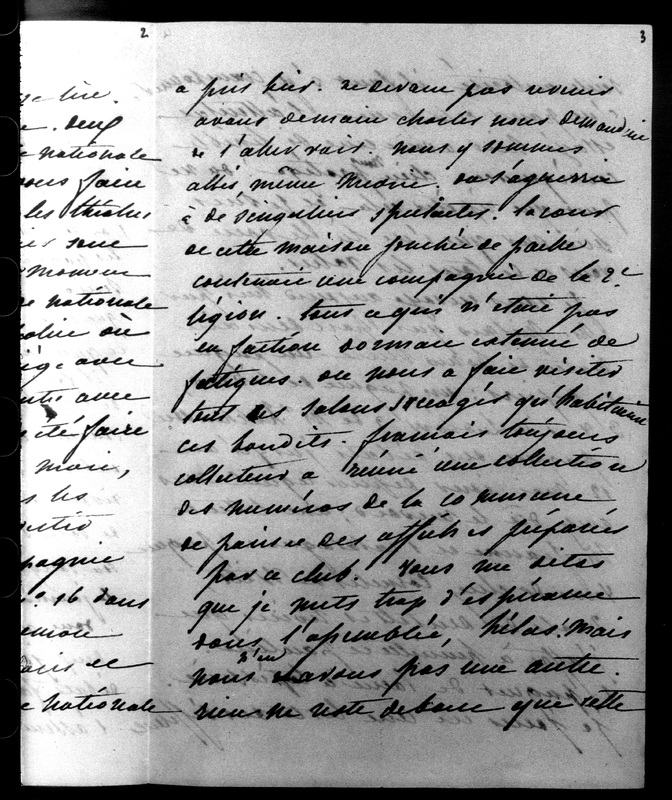 2
ge lire.
e. deux
e nationale
vous faire
les théâtres
sone
moment
e nationale
où
avec
avec
été faire
main,
s les
pagnie
16 dans
e
e nationale
3
a pris hier. ne devant pas revenir
avant demain charles nous demandrie
de l'aller voir. nous y sommes
allés, même Marie. on s'aguerrie
à de singuliers spectacles. la cour
de cette maison jonchée de paille
contenait une compagnie de la 2e
légion. tout ce qui n'était pas
en faction dormait extenué de
fatigues. on nous a fait visiter
tout les salons saccagés qu'habitaient
ces bandits. francais toujours
collecteur a réuni une collection
des numéros de la commune
de paris et des affiches préparées
par ce club. Vous me dites
que je mets trop d'espérance
dans l'assemblée, hélas! mais
nous n'en avons pas une autre.
rien ne reste debout que cette